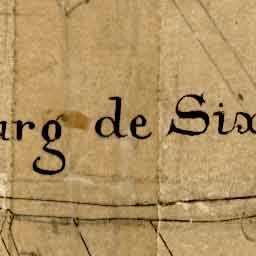 urg de Six